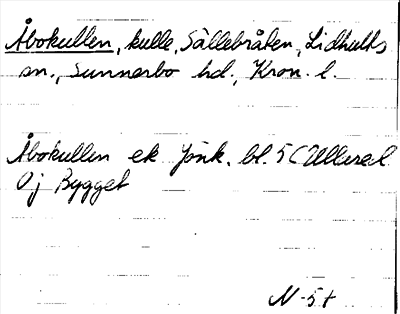 Åbokullen, kulle, Sällebråten, Lidhults
sn., Sunnerbo hd., Kron. l.
Åbokullen ek Jönk. bl. 5 (Ullared
Oj Bygget
N-5t